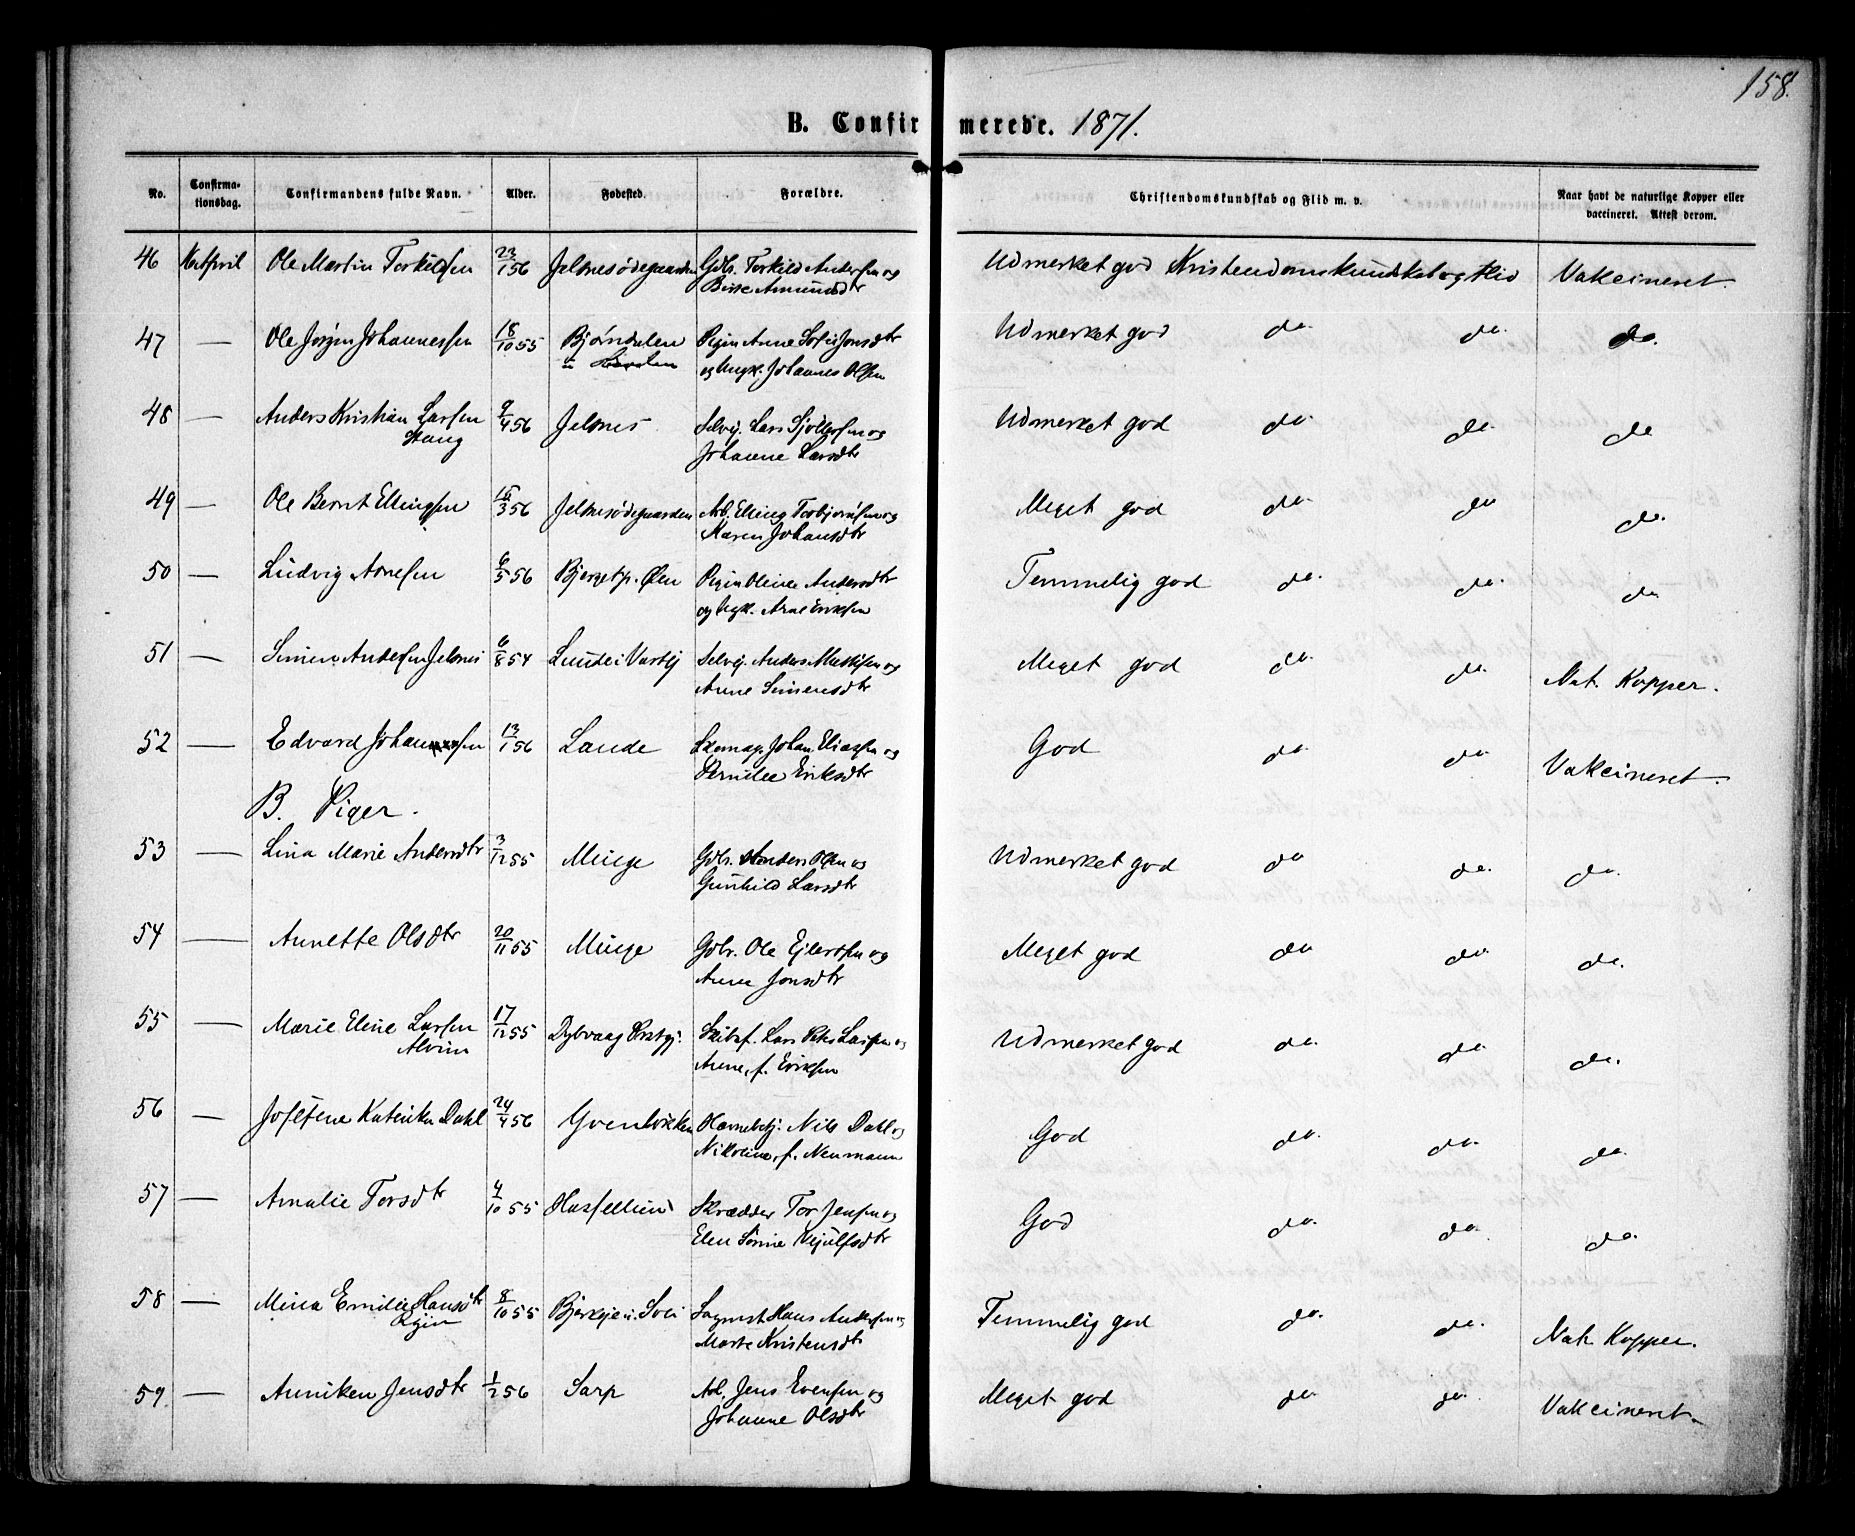 158.
B. Confirmerede. 1871.
No. Confirmationsdag. Confirmandens fulde Navn. Alder. Fødested. Forældre. Christendomskundskab og Flid m. v. Naar havt de naturlige Kopper eller vaccineret. Attest derom.
46 Ole Martin Torkildsen 23/1 56 Jelsnesødegaarden Gdbr. Torkild Andersen og Udmerket god Kristendomskundskab og Flid Vakcineret.
Amundsdtr
47 — Ole Jørgen Johannessen 18/10 55 Bjørndalen Pigen Anne Sofie Jonsdtr Udmerket god do. do. do.
og Ungk. Johannes Olsen
48 — Anders Kristian Larsen 9/4 56 Jelsnes Selvej. Lars Sjøllefsen og Udmerket god do. do. do
Stang Johanne Larsdtr
49 — Ole Bernt Ellingsen 15/3 56 Jelsnesødegaarden Arb. Elling Torbjørnsen og Meget god do. do do.
Maren Johansdtr
50 — Ludvig Arnesen 6/5 56 Bjerget p. Øen Pigen Oline Andersdtr Temmelig god do. do. do
og Ungk. Arne Eriksen
51 — Simen Andersen Jelsnes 6/8 54 Lunde i Varteig Selvej. Anders Mathisen og Meget god do. do. Nat. Kopper.
Anne Simensdtr
52 — Edvard Johansen 13/1 56 Lande Skomag. Johan Eliassen og God do. do. Vakcineret.
Pernille Eriksdtr
B. Piger.
53 — Lina Marie Andersdtr 3/12 55 Minge Gdbr. Anders Olsen og Udmerket god do do. do.
Gunhild Larsdtr
54 — Annette Olsdtr 20/11 55 Minge Gdbr. Ole Ejlertsen og Meget god do do. do.
Anne Jonsdtr
55 — Marie Eline Larsen 17/12 55 Dybvaag Prstgj. Skibsf. Lars Peter Larsen og Udmerket god do. do do.
Alvim Anne, f. Eriksen
56 — Josefine Katinka Dahl 24/4 56 Havnebtj. Nils Dahl og God do. do. do.
Nikoline, f. Neumann
57 — Amalie Torsdtr 4/10 55 Hasfellund Skrædder Tor Jensen og God do. do. do.
Elen Sørine Kjulfsdtr
58 — Mina Emilie Hansdtr 8/10 55 Bjerkeje i Soli Sagmst. Hans Andersen og Temmelig god do. do. Nat. Kopper.
Marte Kristensdtr
59. — Anniken Jensdtr 1/2 56 Sarp Arb. Jens Evensen og Meget god do do. Vakcineret.
Johanne Olsdtr